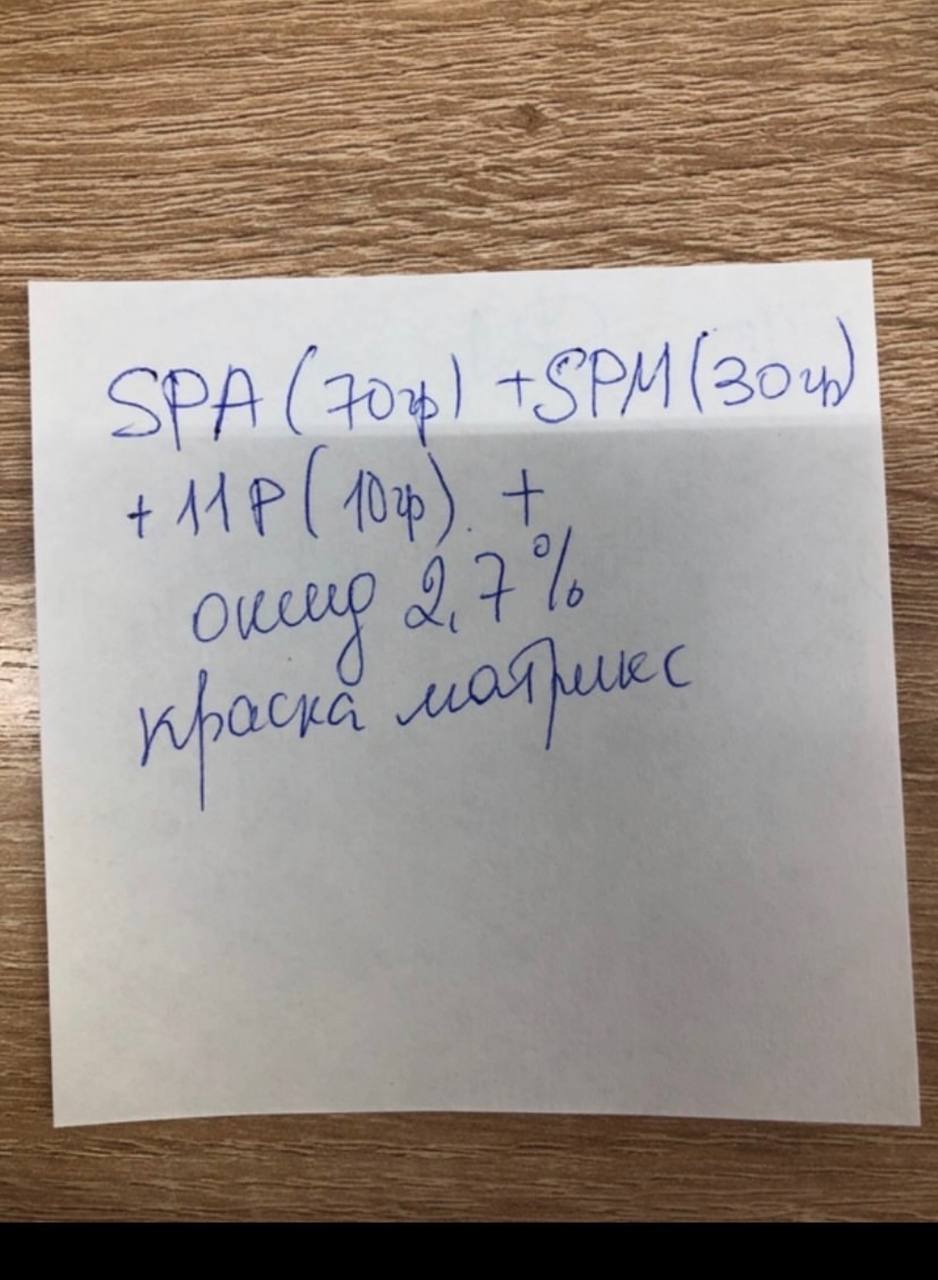 SPA (70гр) + SPM (30гр)
+ 11P (10гр). +
оксид 2,7%
краска матрикс